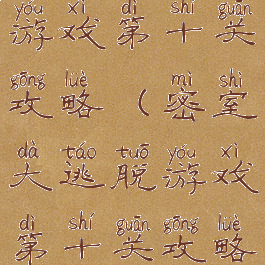 yóu xì dì shí guān
游戏第十关
gōng lüè mì shì
攻略（密室
dà táo tuō yóu xì
大逃脱游戏
dì shí guān gōng lüè
第十关攻略